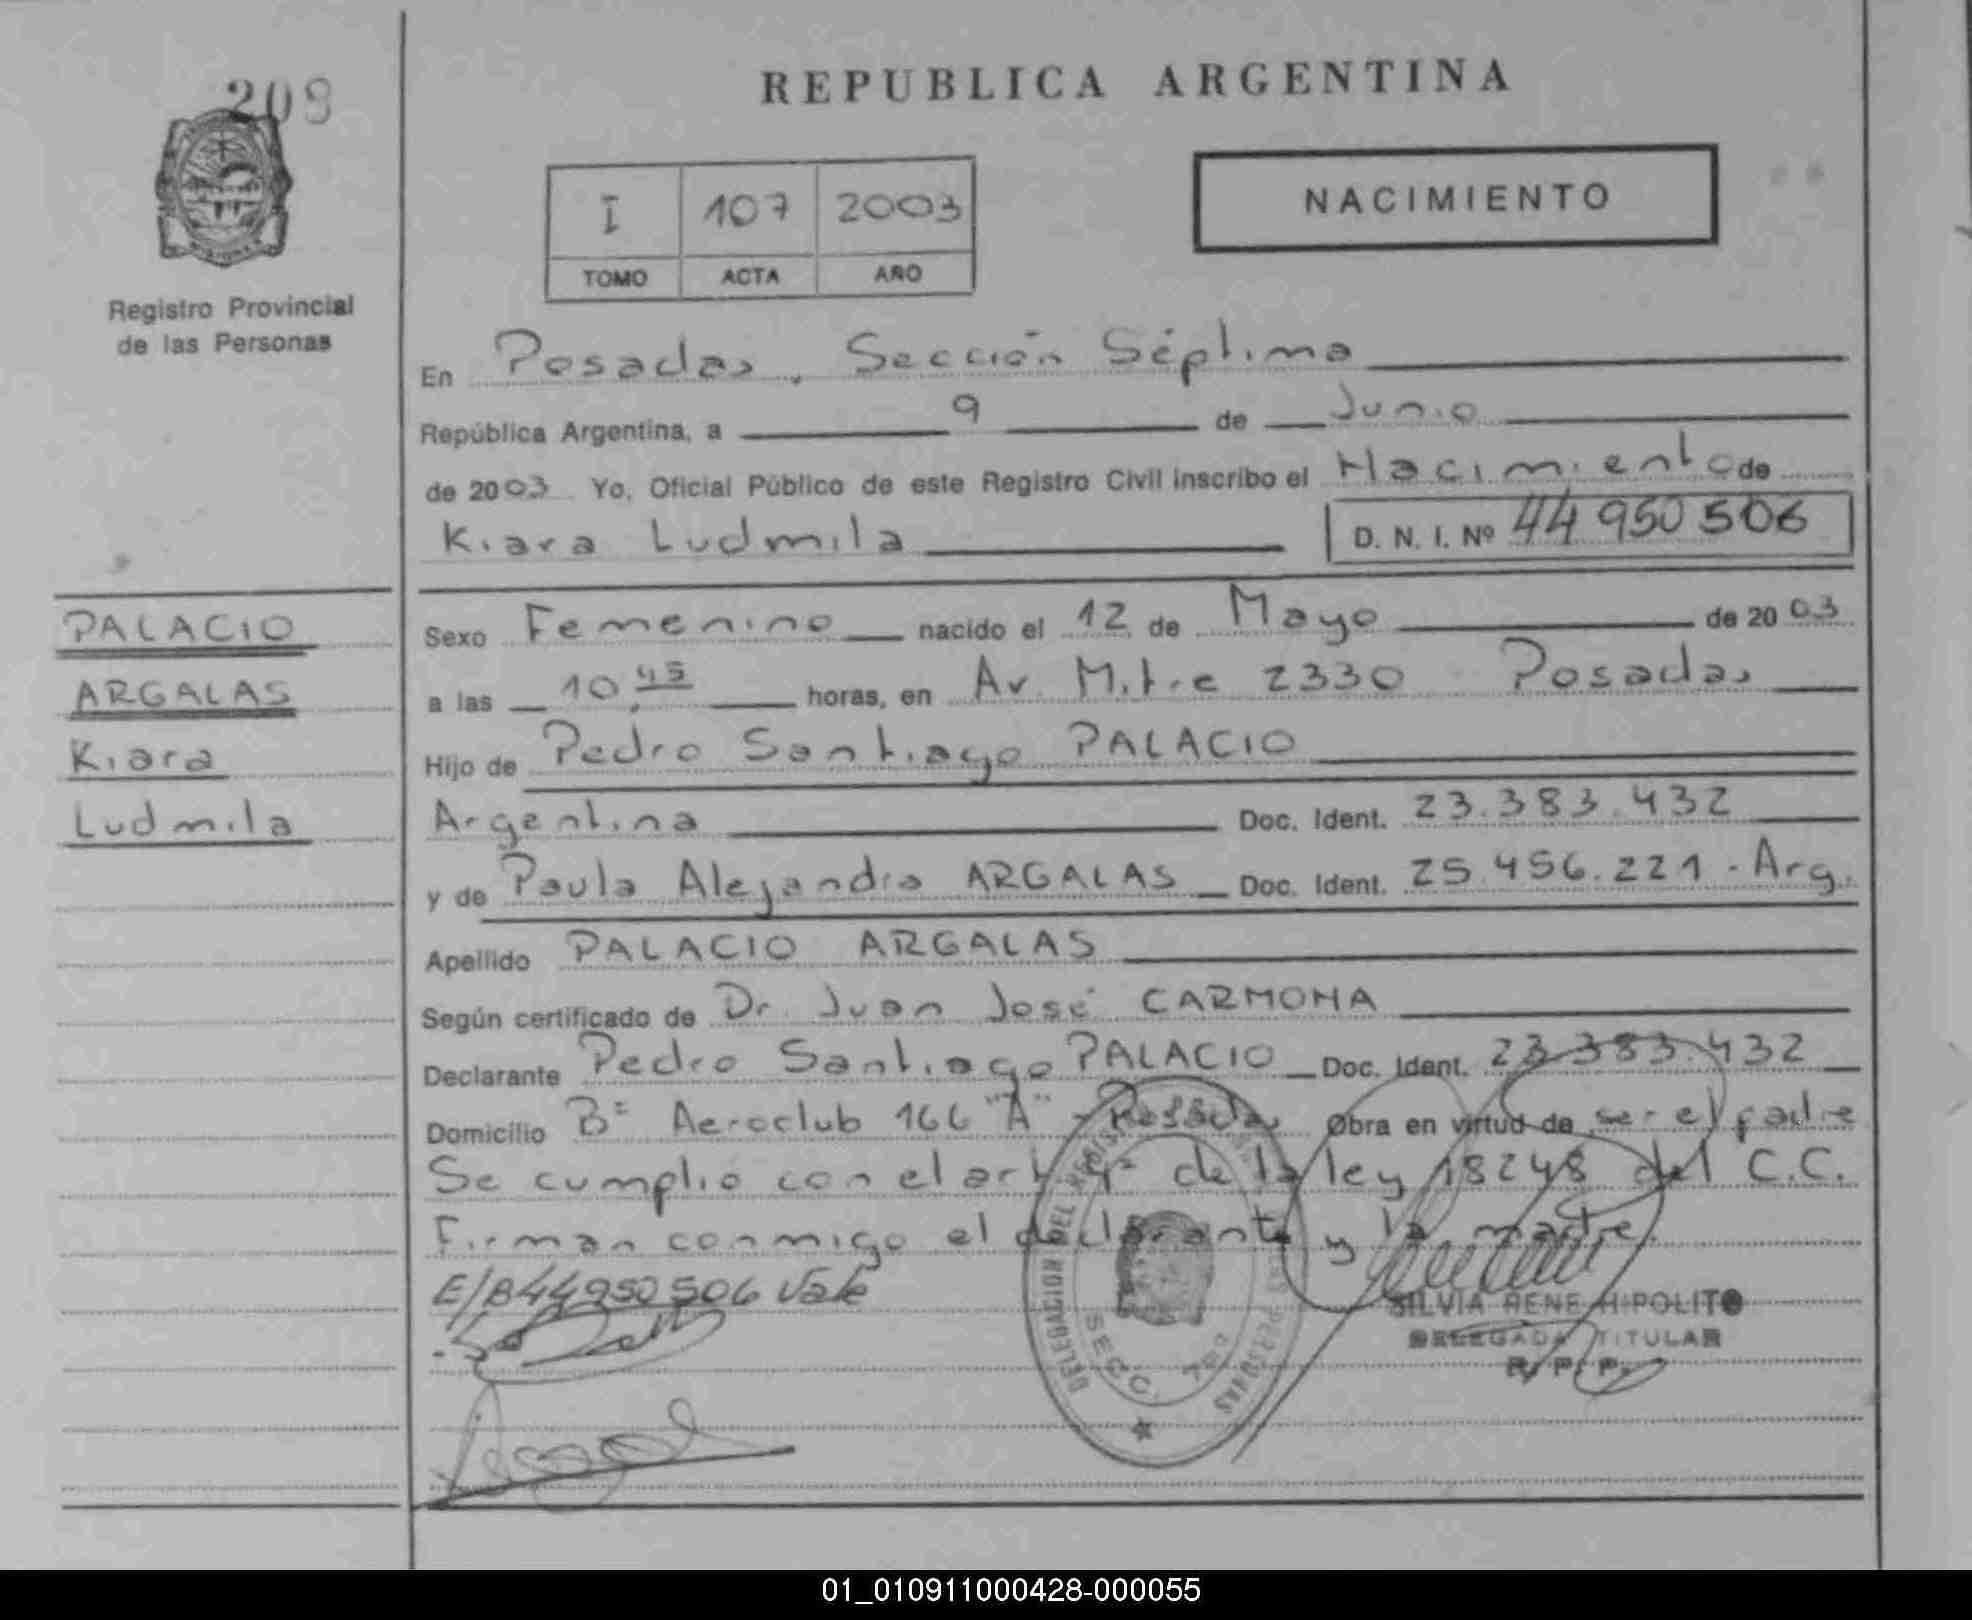 209
REPUBLICA ARGENTINA
I 107 2003
TOMO ACTA AÑO
NACIMIENTO
Registro Provincial
de las Personas
En Posadas, Sección Séptima
República Argentina, a 9 de Junio
de 2003 Yo, Oficial Público de este Registro Civil inscribo el Nacimiento de
Kiara Ludmila D. N. I. Nº 44 950 506
PALACIO
ARGALAS
Kiara
Ludmila
Sexo Femenino nacido el 12 de Mayo de 2003
a las 10,45 horas, en Av. Mitre 2330 Posadas
Hijo de Pedro Santiago PALACIO
Argentina Doc. Ident. 23.383.432
y de Paula Alejandra ARGALAS Doc. Ident. 25.456.221 - Arg.
Apellido PALACIO ARGALAS
Según certificado de Dr. Juan José CARMONA
Declarante Pedro Santiago PALACIO Doc. Ident. 23.383.432
Domicilio Bº Aeroclub 166 "A" - Posadas Obra en virtud de ser el padre
Se cumplio con el art 4º de la ley 18248 del C.C.
Firman conmigo el declarante y la madre.
E/B 44 950 506 Vale
DELEGACION DEL REGIST PERSONAS
SECC. 7ma
SILVIA RENE HIPOLITO
DELEGADA TITULAR
R. P. P.
01_010911000428-000055